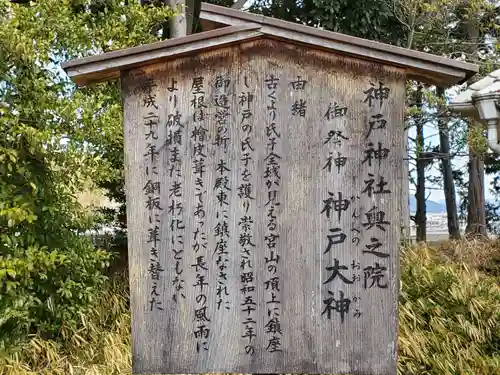 神戸神社奥之院
御祭神 神戸大神
かんべのおおかみ
由緒
古くより氏子全域が見える宮山の頂上に鎮座
し神戸の氏子を護り崇敬され昭和五十二年の
御造営の折、本殿東に鎮座なされた
屋根は檜皮葺であったが長年の風雨に
より破損また老朽化にともない
平成二九年に銅板に葺き替えた